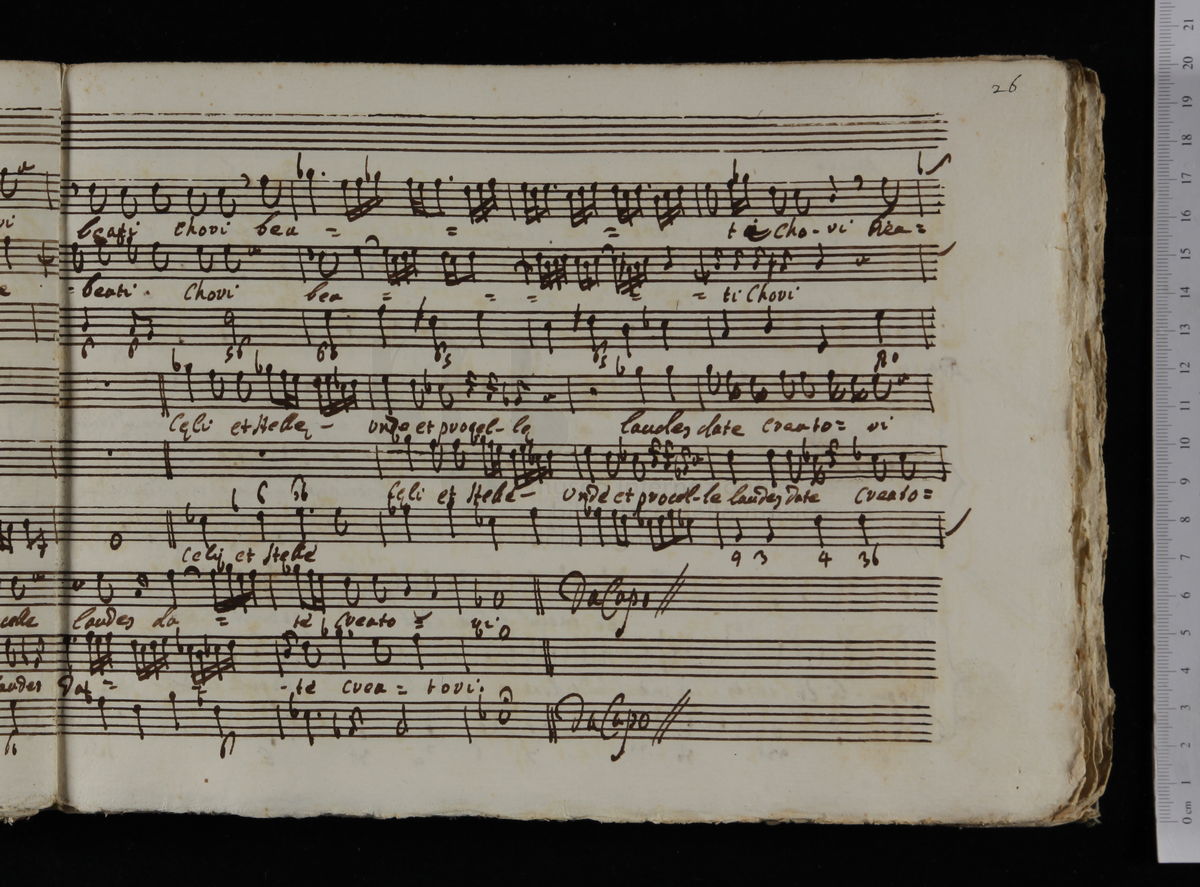 26
vi beati chori bea = = = ti cho-ri
= beati chori bea = = = = = ti chori
6 6 56 66 65 65
celi et stelle - unde et procel-le laudes date creato = ri
celi et stelle - unde et procel-le laudes date creato =
6 6 36
celi et stelle
9 3 4 36
laudes da = te creato = ri
Da Capo
laudes dat = = -te crea = tori.
6 6
Da Capo
21
20
19
18
17
16
15
14
13
12
11
10
9
8
7
6
5
4
3
2
1
0 cm